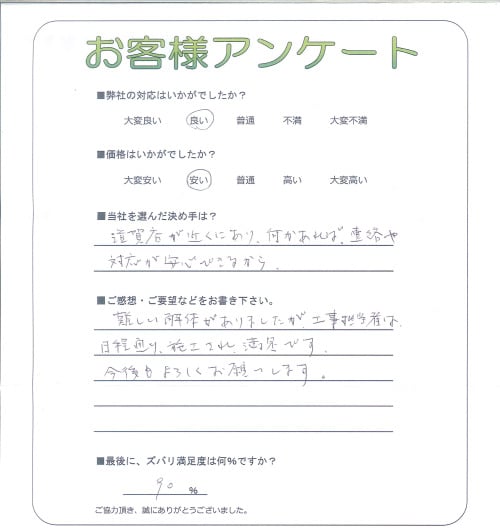 お客様アンケート
■弊社の対応はいかがでしたか？
大変良い 良い 普通 不満 大変不満
■価格はいかがでしたか？
大変安い 安い 普通 高い 大変高い
■当社を選んだ決め手は？
滋賀店が近くにあり、何かあれば、連絡や
対応が安心できるから。
■ご感想・ご要望などをお書き下さい。
難しい解体がありましたが、工事担当者は、
日程通り、施工され、満足です。
今後もよろしくお願いします。
■最後に、ズバリ満足度は何％ですか？
90 ％
ご協力頂き、誠にありがとうございました。